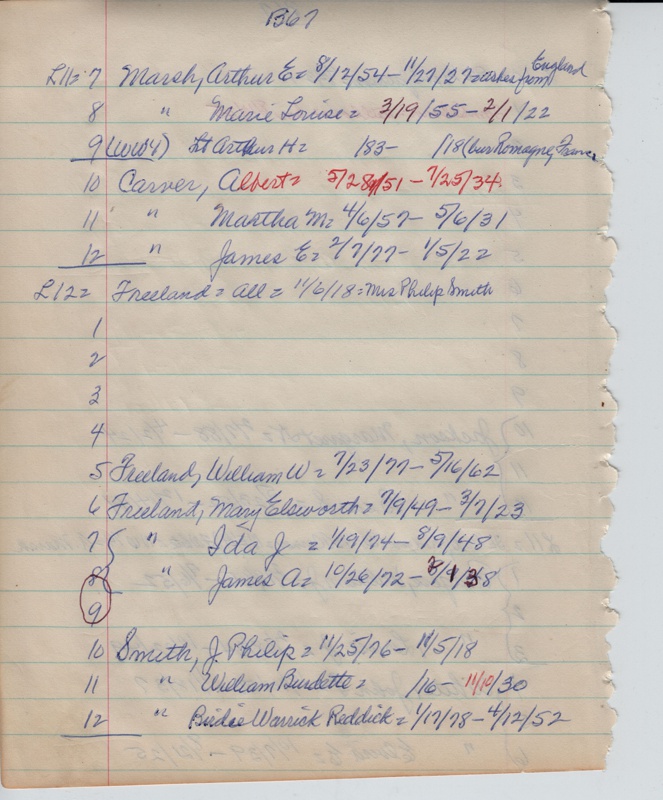 B67
L11= 7 Marsh, Arthur E= 8/12/54 - 11/27/27 = ashes from England
8 " Marie Louise = 3/19/55 - 2/1/22
9 (WW1) Lt Arthur H = /83 - /18 (bur Romagne, France
10 Carver, Albert = 5/28/51 - 7/25/34
11 " Martha M = 4/6/57 - 5/6/31
12 " James E = 2/7/77 - 1/5/22
L12 = Freeland = all = 11/6/18 = Mrs Philip Smith
1
2
3
4
5 Freeland, William W = 7/23/77 - 5/16/62
6 Freeland, Mary Elsworth = 7/9/49 - 3/7/23
7 " Ida J = 1/19/74 - 8/9/48
8 " James A = 10/26/72 -
9
10 Smith, J. Philip = 11/25/76 - 11/5/18
11 " William Burdette = /16 - 11/10/30
12 " Birdie Warrick Reddick = 1/17/78 - 4/12/52